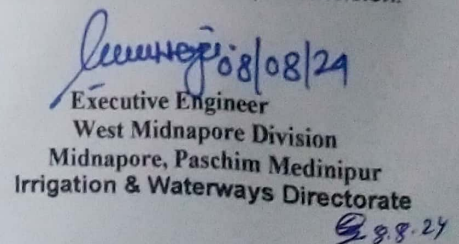 08/08/24
Executive Engineer
West Midnapore Division
Midnapore, Paschim Medinipur
Irrigation & Waterways Directorate
8.8.24